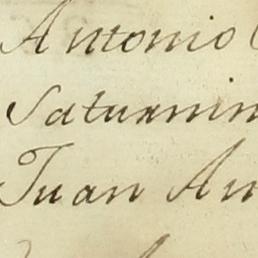 Antonio
Saturnin
Juan An